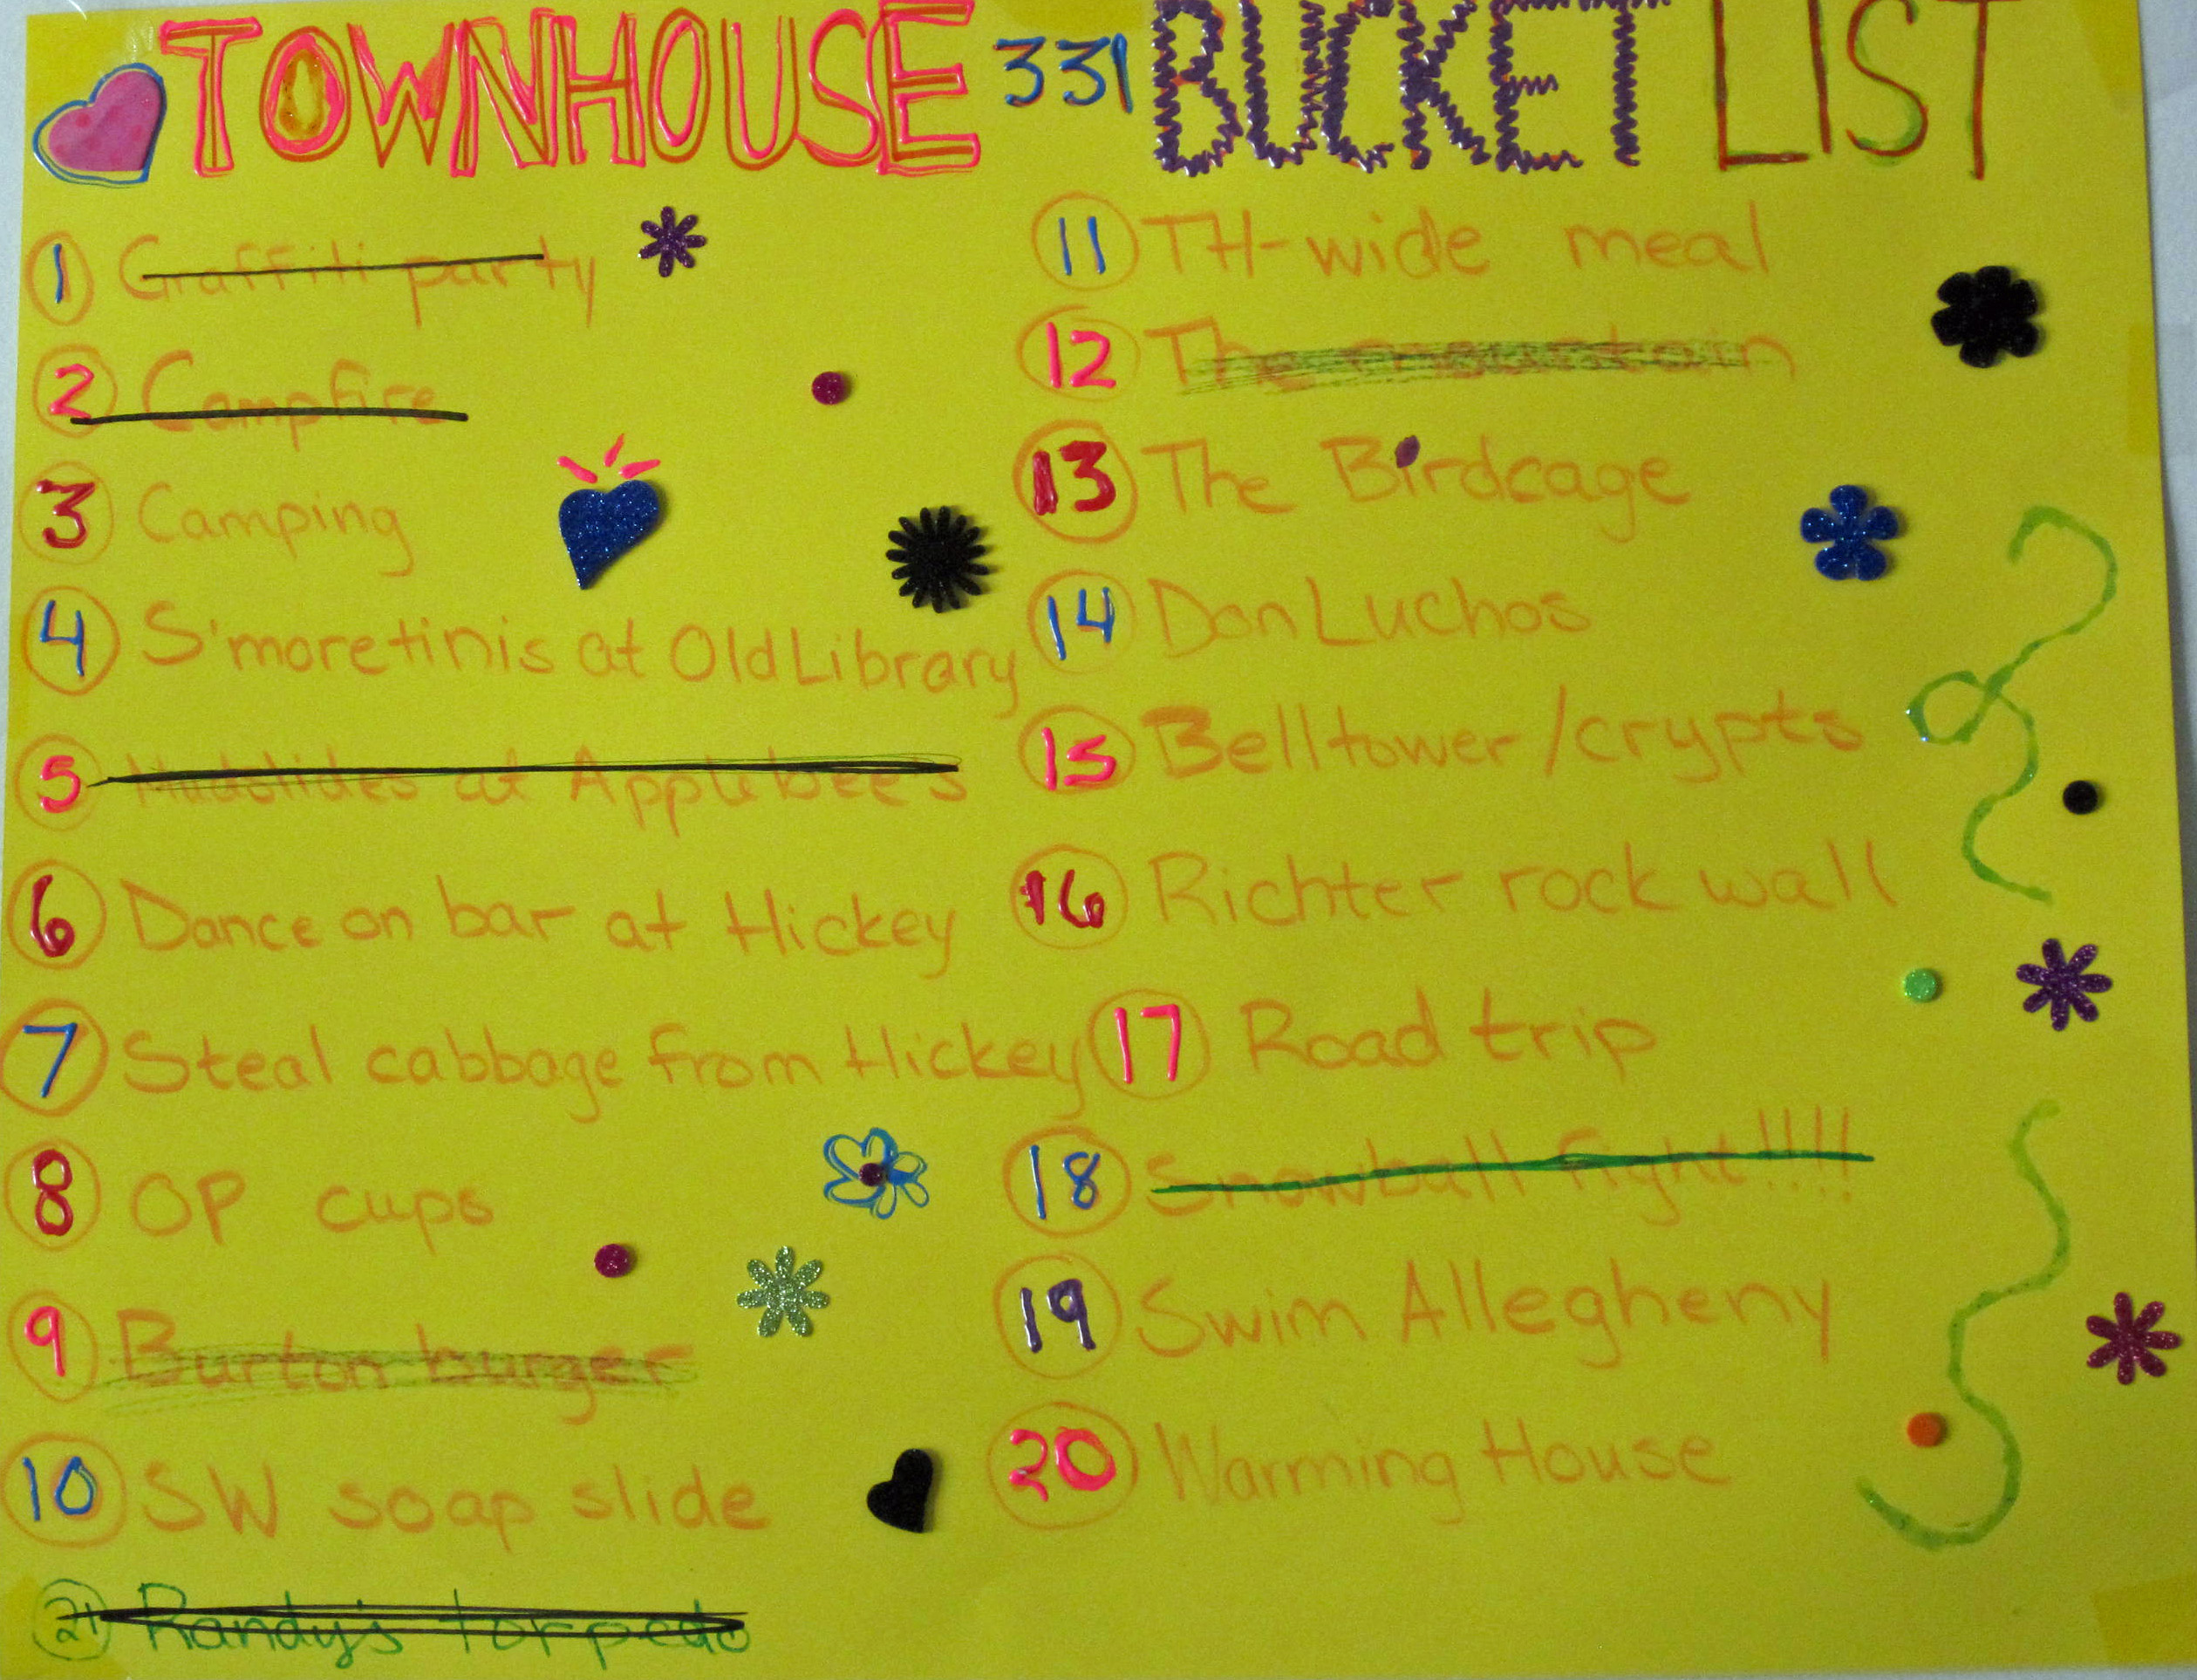 TOWNHOUSE 331 BUCKET LIST
1 Graffiti party
2 Campfire
3 Camping
4 S'moretinis at Old Library
5 Mudslides at Applebee's
6 Dance on bar at Hickey
7 Steal cabbage from Hickey
8 OP cups
9 Burton burger
10 SW soap slide
21 Randy's torpedo
11 TH-wide meal
12 The mountain
13 The Birdcage
14 Don Luchos
15 Belltower/crypts
16 Richter rock wall
17 Road trip
18 Snowball fight!!!!
19 Swim Allegheny
20 Warming House